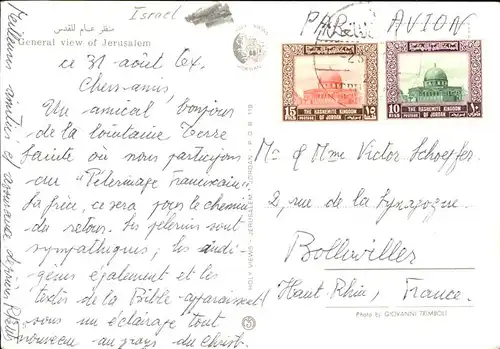 Israel
PAR AVION
منظر عام للقدس
General view of Jerusalem
ce 31 août 6x.
Chers amis,
Un amical bonjour
de la lointaine Terre
Sainte où nous participons
au "Pèlerinage Franciscain"
ce sera pour le chemin
du retour. Les pèlerins sont
sympathiques; les indi-
gènes également et les
textes de la Bible apparaissent
sous un éclairage tout
nouveau au pays du Christ.
Meilleures amitiés et
15 FILS
POSTAGE
THE HASHEMITE KINGDOM
OF JORDAN
10 FILS
POSTAGE
THE HASHEMITE KINGDOM
OF JORDAN
M. & Mme Victor Schoeffer
2, rue de la Synagogue
Bollwiller
Haut-Rhin, France.
Photo by GIOVANNI TRIMBOLI
HOLY VIEWS - JERUSALEM - JORDAN - P.O.B. 119